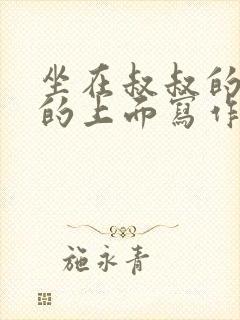 坐在叔叔的
的上而寫作
施永青